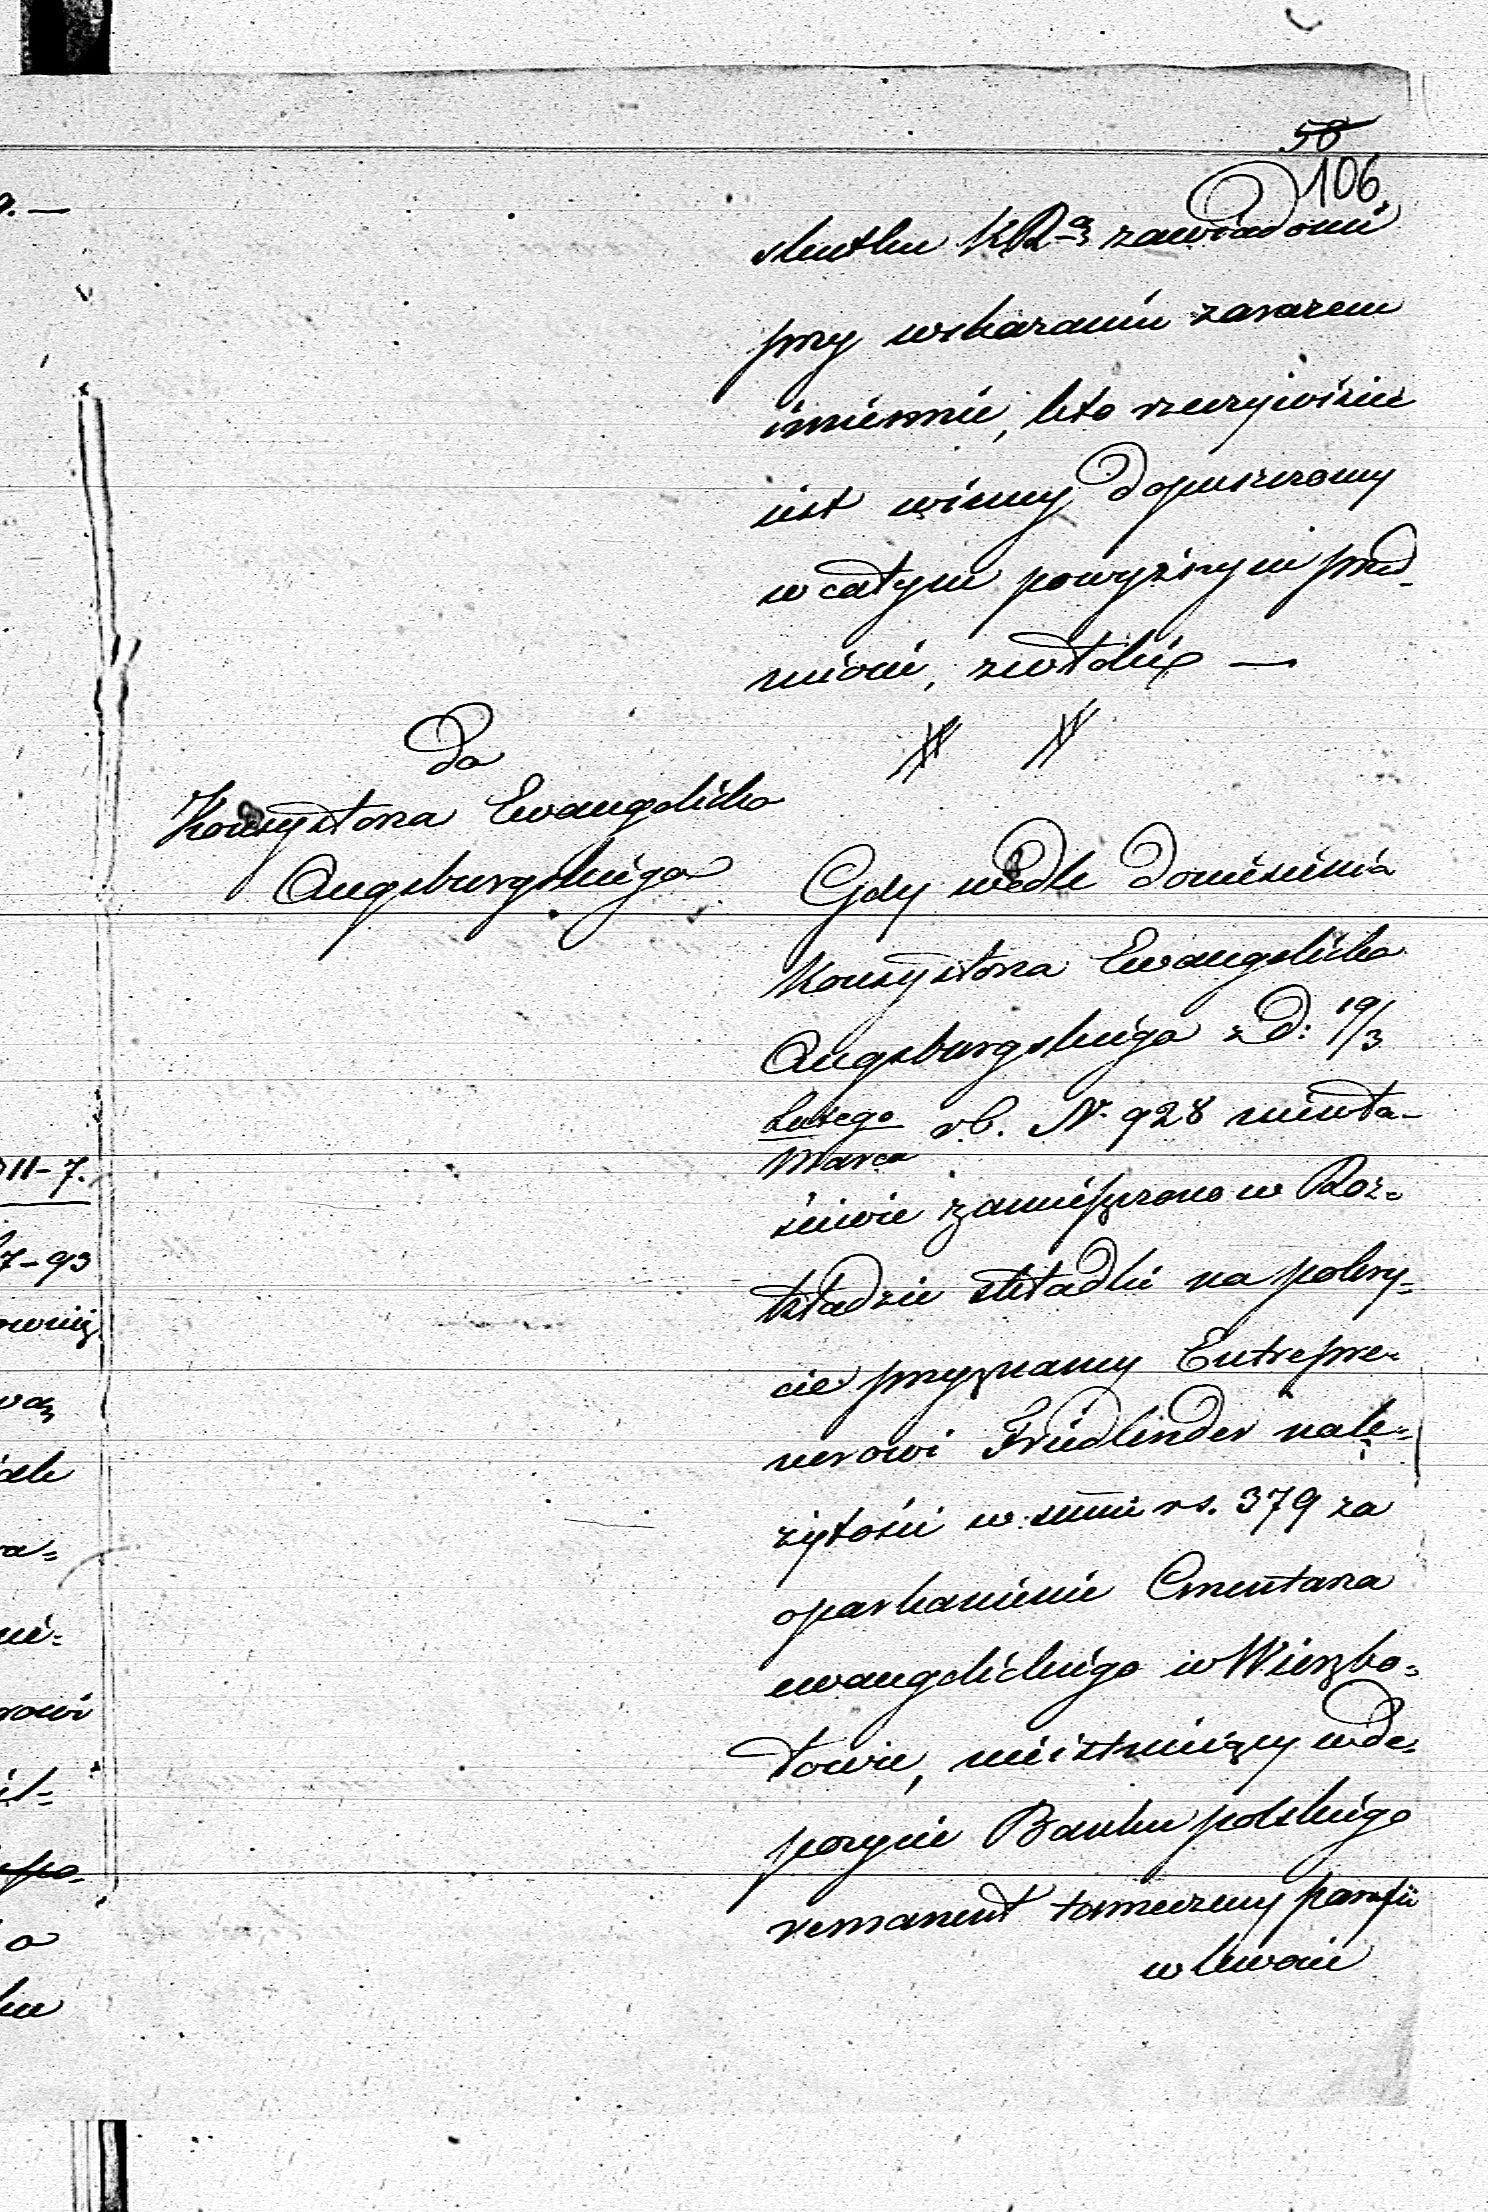 58
106
skutku KRz zawiadomi
przy wskazaniu zarazem
imiennie, kto rzeczywiście
jest winny dopuszczony
w całym powyższym przed-
miocie, zwłoki —
Do
Konsystorza Ewangelicko
Augsburgskiego
Gdy wedle doniesienia
Konsystorza Ewangelicko
Augsburgskiego z d: 19/3
Lutego
Marca r.b. N. 928 niewła-
ściwie zamieszczono w Roz-
kładzie składki na pokry-
cie przyznanej Entrepre-
nerowi Friedlender nale-
żytości w summie rs. 379 za
oparkanienie Cmentarza
ewangelickiego w Wierzbo-
łowie, nieistniejący w de-
pozycie Banku polskiego
remanent tamecznej parafii
w kwocie